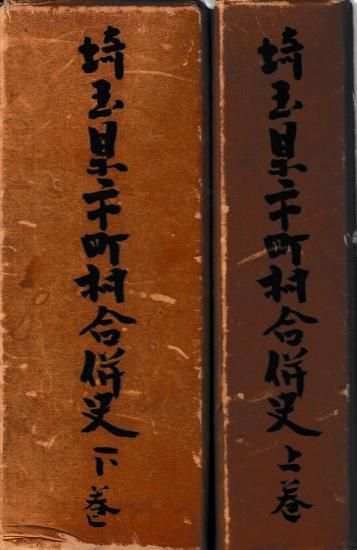 埼玉県市町村合併史上巻
埼玉県市町村合併史下巻